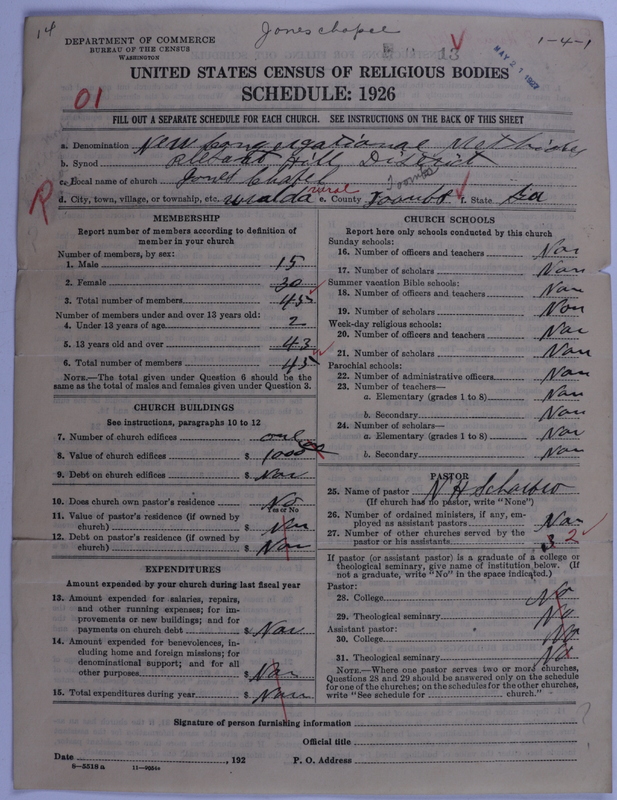 14
Jones chapel
DEPARTMENT OF COMMERCE
BUREAU OF THE CENSUS
WASHINGTON
13
MAY 21 1927
1-4-1
UNITED STATES CENSUS OF RELIGIOUS BODIES
SCHEDULE: 1926
01
FILL OUT A SEPARATE SCHEDULE FOR EACH CHURCH. SEE INSTRUCTIONS ON THE BACK OF THIS SHEET
a. Denomination New Congregational Methodist
b. Synod Plesant Hill District
c. Local name of church Jones Chapel
R
d. City, town, village, or township, etc. uvalda rural e. County Toombs Toombs f. State Ga
MEMBERSHIP
Report number of members according to definition of
member in your church
Number of members, by sex:
1. Male 15
2. Female 30
3. Total number of members 45
Number of members under and over 13 years old:
4. Under 13 years of age 2
5. 13 years old and over 43
6. Total number of members 45
NOTE.—The total given under Question 6 should be the
same as the total of males and females given under Question 3.
CHURCH BUILDINGS
See instructions, paragraphs 10 to 12
7. Number of church edifices one
8. Value of church edifices $ 1000
9. Debt on church edifices $ Non
10. Does church own pastor's residence No
Yes or No
11. Value of pastor's residence (if owned by
church) $ Non
12. Debt on pastor's residence (if owned by
church) $ Non
EXPENDITURES
Amount expended by your church during last fiscal year
13. Amount expended for salaries, repairs,
and other running expenses; for im-
provements or new buildings; and for
payments on church debt $ Non
14. Amount expended for benevolences, in-
cluding home and foreign missions; for
denominational support; and for all
other purposes $ Non
15. Total expenditures during year $ Non
CHURCH SCHOOLS
Report here only schools conducted by this church
Sunday schools:
16. Number of officers and teachers Non
17. Number of scholars Non
Summer vacation Bible schools:
18. Number of officers and teachers Non
19. Number of scholars Non
Week-day religious schools:
20. Number of officers and teachers Non
21. Number of scholars Non
Parochial schools:
22. Number of administrative officers Non
23. Number of teachers—
a. Elementary (grades 1 to 8) Non
b. Secondary Non
24. Number of scholars—
a. Elementary (grades 1 to 8) Non
b. Secondary Non
PASTOR
25. Name of pastor N H
(If church has no pastor, write "None")
26. Number of ordained ministers, if any, em-
ployed as assistant pastors Non
27. Number of other churches served by the
pastor or his assistants 3 2
If pastor (or assistant pastor) is a graduate of a college or
theological seminary, give name of institution below. (If
not a graduate, write "No" in the space indicated.)
Pastor:
28. College No
29. Theological seminary No
Assistant pastor:
30. College No
31. Theological seminary No
NOTE.—Where one pastor serves two or more churches,
Questions 28 and 29 should be answered only on the schedule
for one of the churches; on the schedules for the other churches,
write "See schedule for church."
Signature of person furnishing information
Official title
Date , 192 P. O. Address
8-5518 a 11-9051a